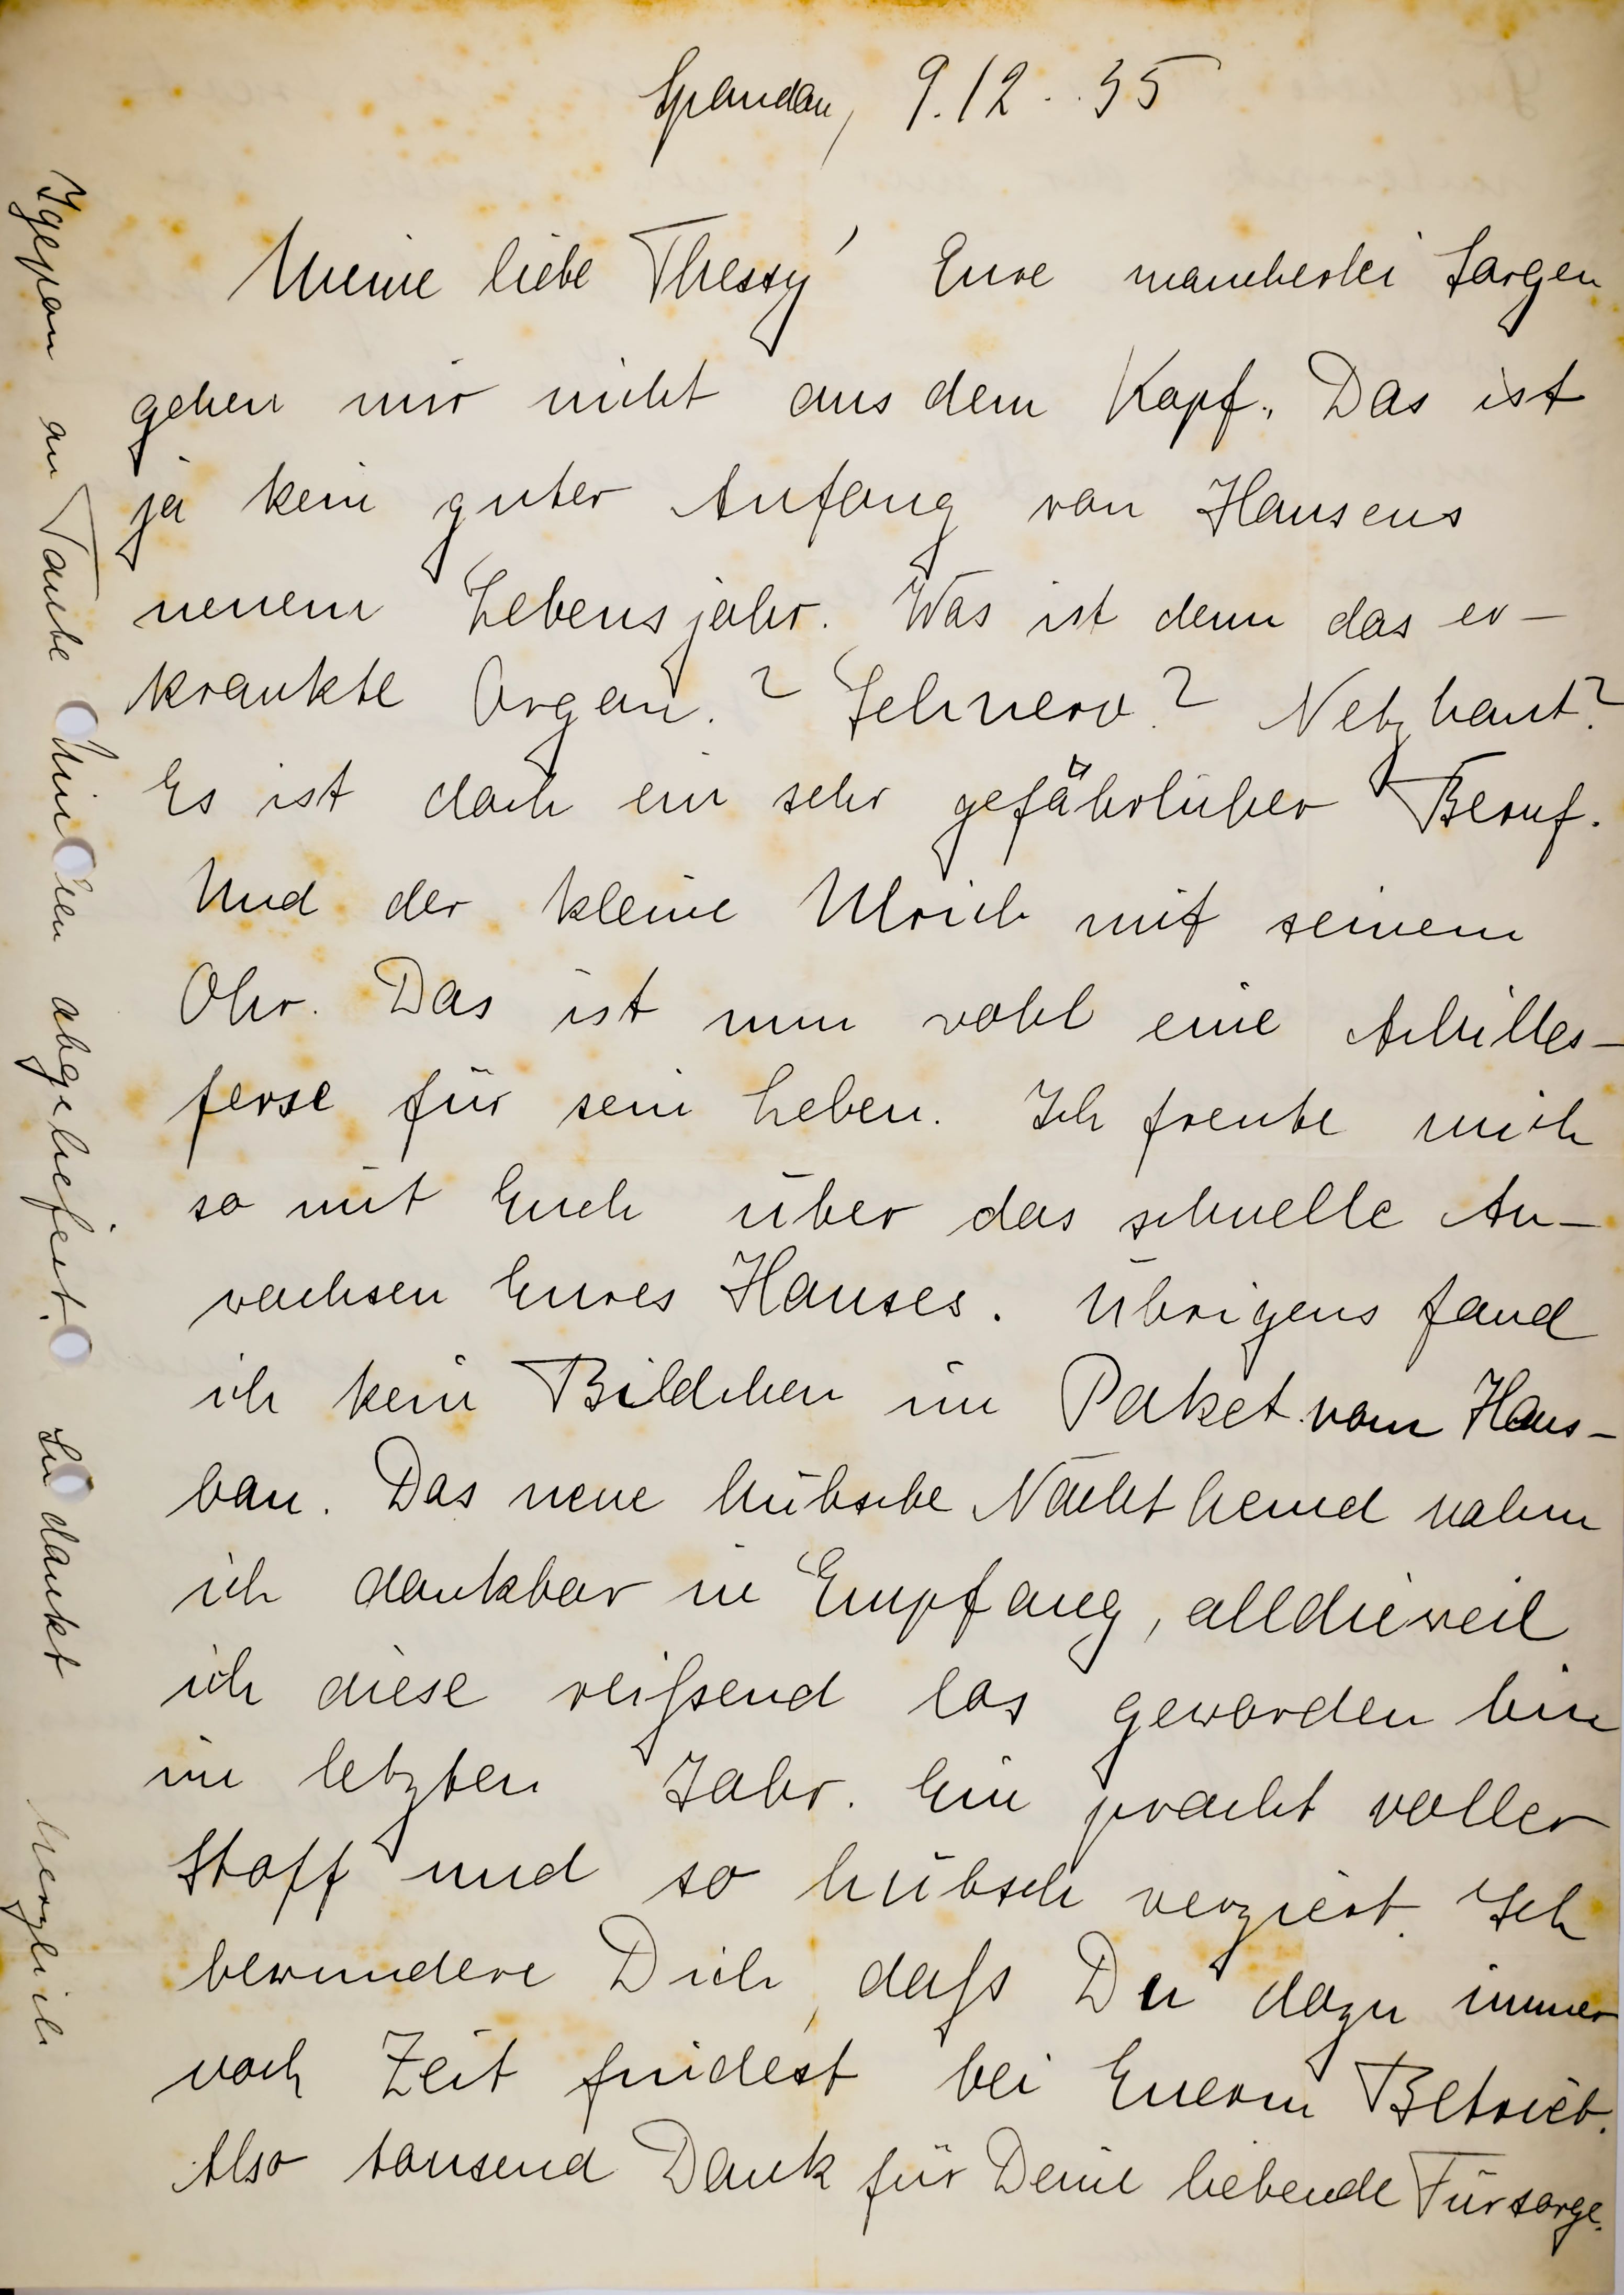 Spandau, 9.12..35
Meine liebe Thessy! Eure mancherlei Sorgen
gehen mir nicht aus dem Kopf. Das ist
ja kein guter Anfang von Hansens
neuem Lebensjahr. Was ist denn das er-
krankte Organ.? Sehnerv? Netzhaut?
Es ist doch ein sehr gefährlicher Beruf.
Und der kleine Ulrich mit seinem
Ohr. Das ist nun wohl eine Achilles-
ferse für sein Leben. Ich freute mich
so mit Euch über das schnelle An-
wachsen Eures Hauses. Übrigens fand
ich kein Bildchen im Paket vom Haus-
bau. Das neue hübsche Nachthemd nahm
ich dankbar in Empfang, alldieweil
ich diese reißend los geworden bin
im letzten Jahr. Ein prachtvoller
Stoff und so hübsch verziert. Ich
bewundere Dich, daß Du dazu immer
noch Zeit findest bei Euerm Betrieb.
Also tausend Dank für Deine liebende Fürsorge.
an Tante abgeliefert. Sie dankt herzlich